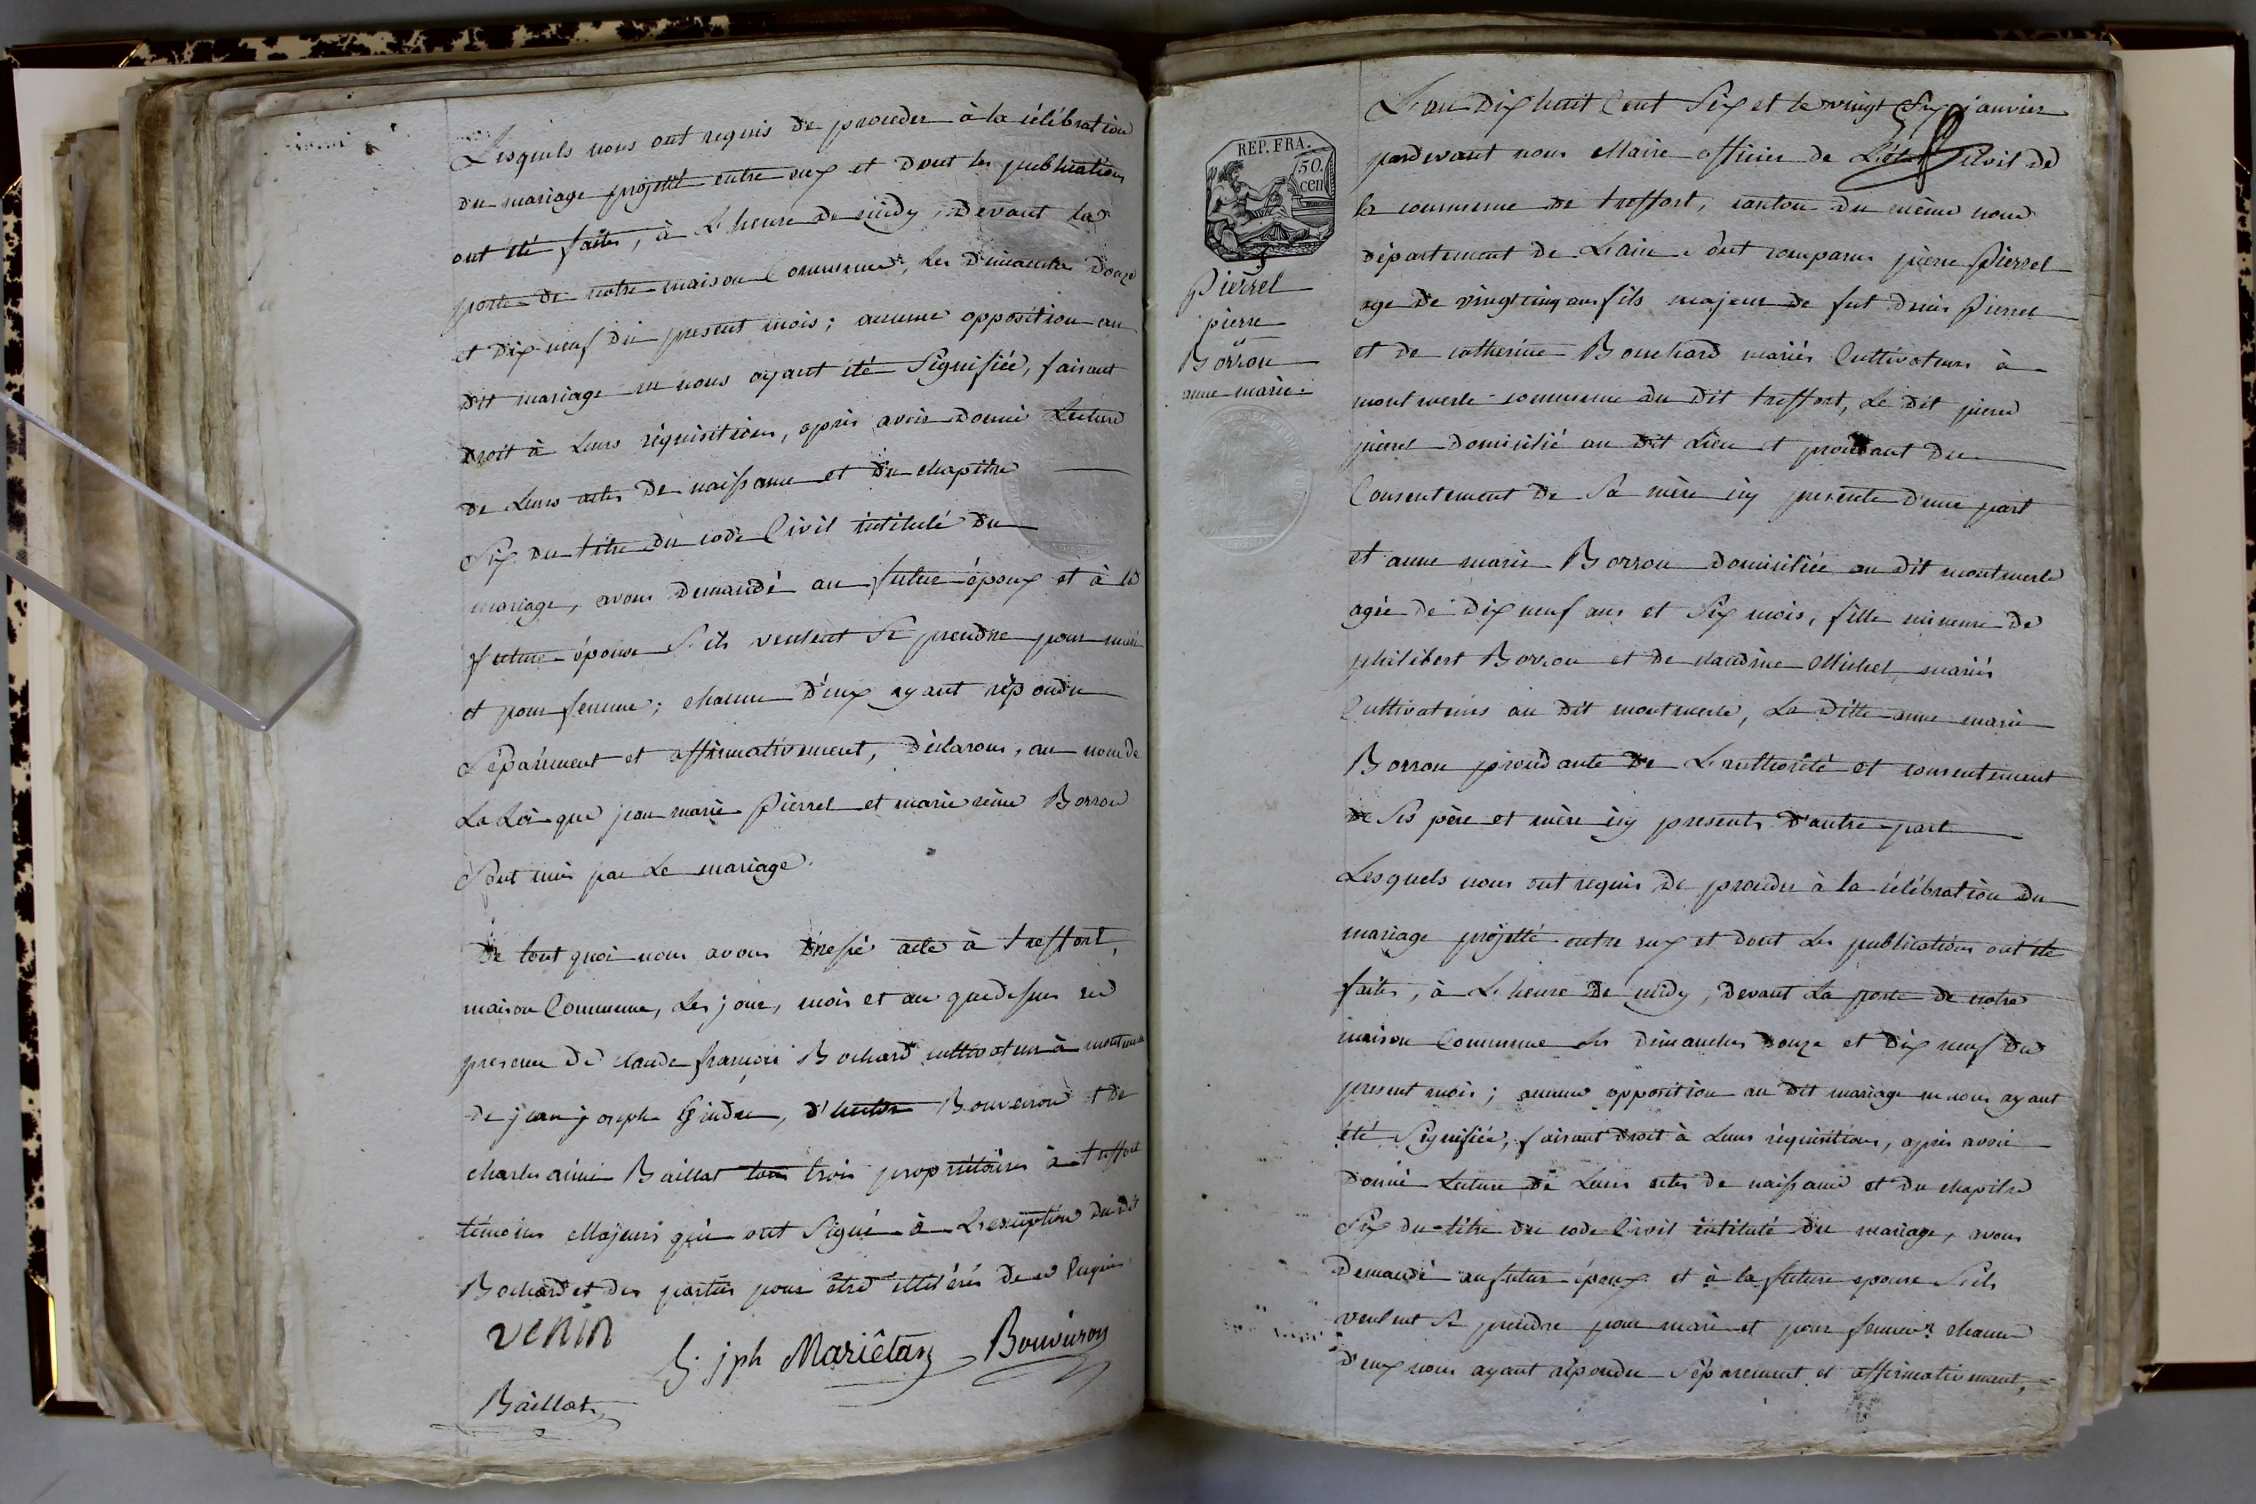 Lesquels nous ont requis de proceder à la célébration
du mariage projetté entre eux et dont les publications
ont été faites, à L'heure de midy, devant la
porte de notre maison Commune, les dimanches douze
et dix neuf du present mois; aucune opposition au
dit mariage ne nous ayant été Signifiée, faisant
droit à Leurs réquisitions, après avoir donné Lecture
de Leurs actes de naissance et du chapitre
Six du titre du code Civil intitulé du
mariage, avons demandé au futur époux et à la
future épouse S'ils veulent Se prendre pour mari
et pour femme; chacun d'eux ayant répondu
Séparément et affirmativement, déclarons, au nom de
La Loi que jean marie Pierrel et marie reine Borron
Sont unis par Le mariage.
De tout quoi nous avons dressé acte à treffort,
maison Commune, Les jour, mois et an que dessus en
presence de claude françois Bochard cultivateur à
de jean joseph, d' Bouveiron et de
charles aimé Baillat tous trois propriétaires à treffort
témoins Majeurs qui ont Signé à L'exception du dit
Bochard et des parties pour être illitérés de ce Enquis
VENIN
G. jph Mariêtan
Bouveiron
Baillat
L'an Dix huit Cent Six et le vingt Six janvier
pardevant nous Maire officier de L'état Civil de
la commune de treffort, canton du même nom
département de L'ain, ont comparus pierre Pierrel
REP. FRA.
50.
cen
Pierrel
pierre
et
Borron
anne marie.
age de vingt cinq ans fils majeur de fut denis Pierrel
et de catherine Bouchard mariés Cultivateurs à
montmerle commune du dit treffort, Le dit pierre
pierrel domicilié au dit Lieu et procedant du
Consentement de Sa mère icy presente d'une part
et anne marie Borron domiciliée au dit montmerle
agée de dix neuf ans et Six mois, fille mineure de
philibert Borron et de claudine Michel, mariés
Cultivateurs au dit montmerle, La ditte anne marie
Borron procedante de L'authorité et consentement
de Ses père et mère icy presents d'autre part
Lesquels nous ont requis de proceder à la célébration du
mariage projetté entre eux et dont Les publications ont été
faites, à L'heure de midy, devant La porte de notre
maison Commune les dimanches douze et dix neuf du
present mois; aucune opposition au dit mariage ne nous ayant
été Signifiée, faisant droit à Leurs réquisitions, après avoir
donné Lecture de Leurs actes de naissance et du chapitre
Six du titre du code Civil intitulé du mariage, avons
Demandé au futur époux et à la future epouse S'ils
veulent Se prendre pour mari et pour femme? chacun
d'eux nous ayant répondu Séparement et affirmativement,